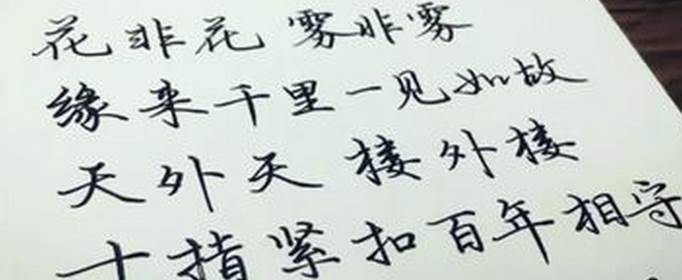 花非花 雾非雾
缘来千里一见如故
天外天 楼外楼
十指紧扣百年相守